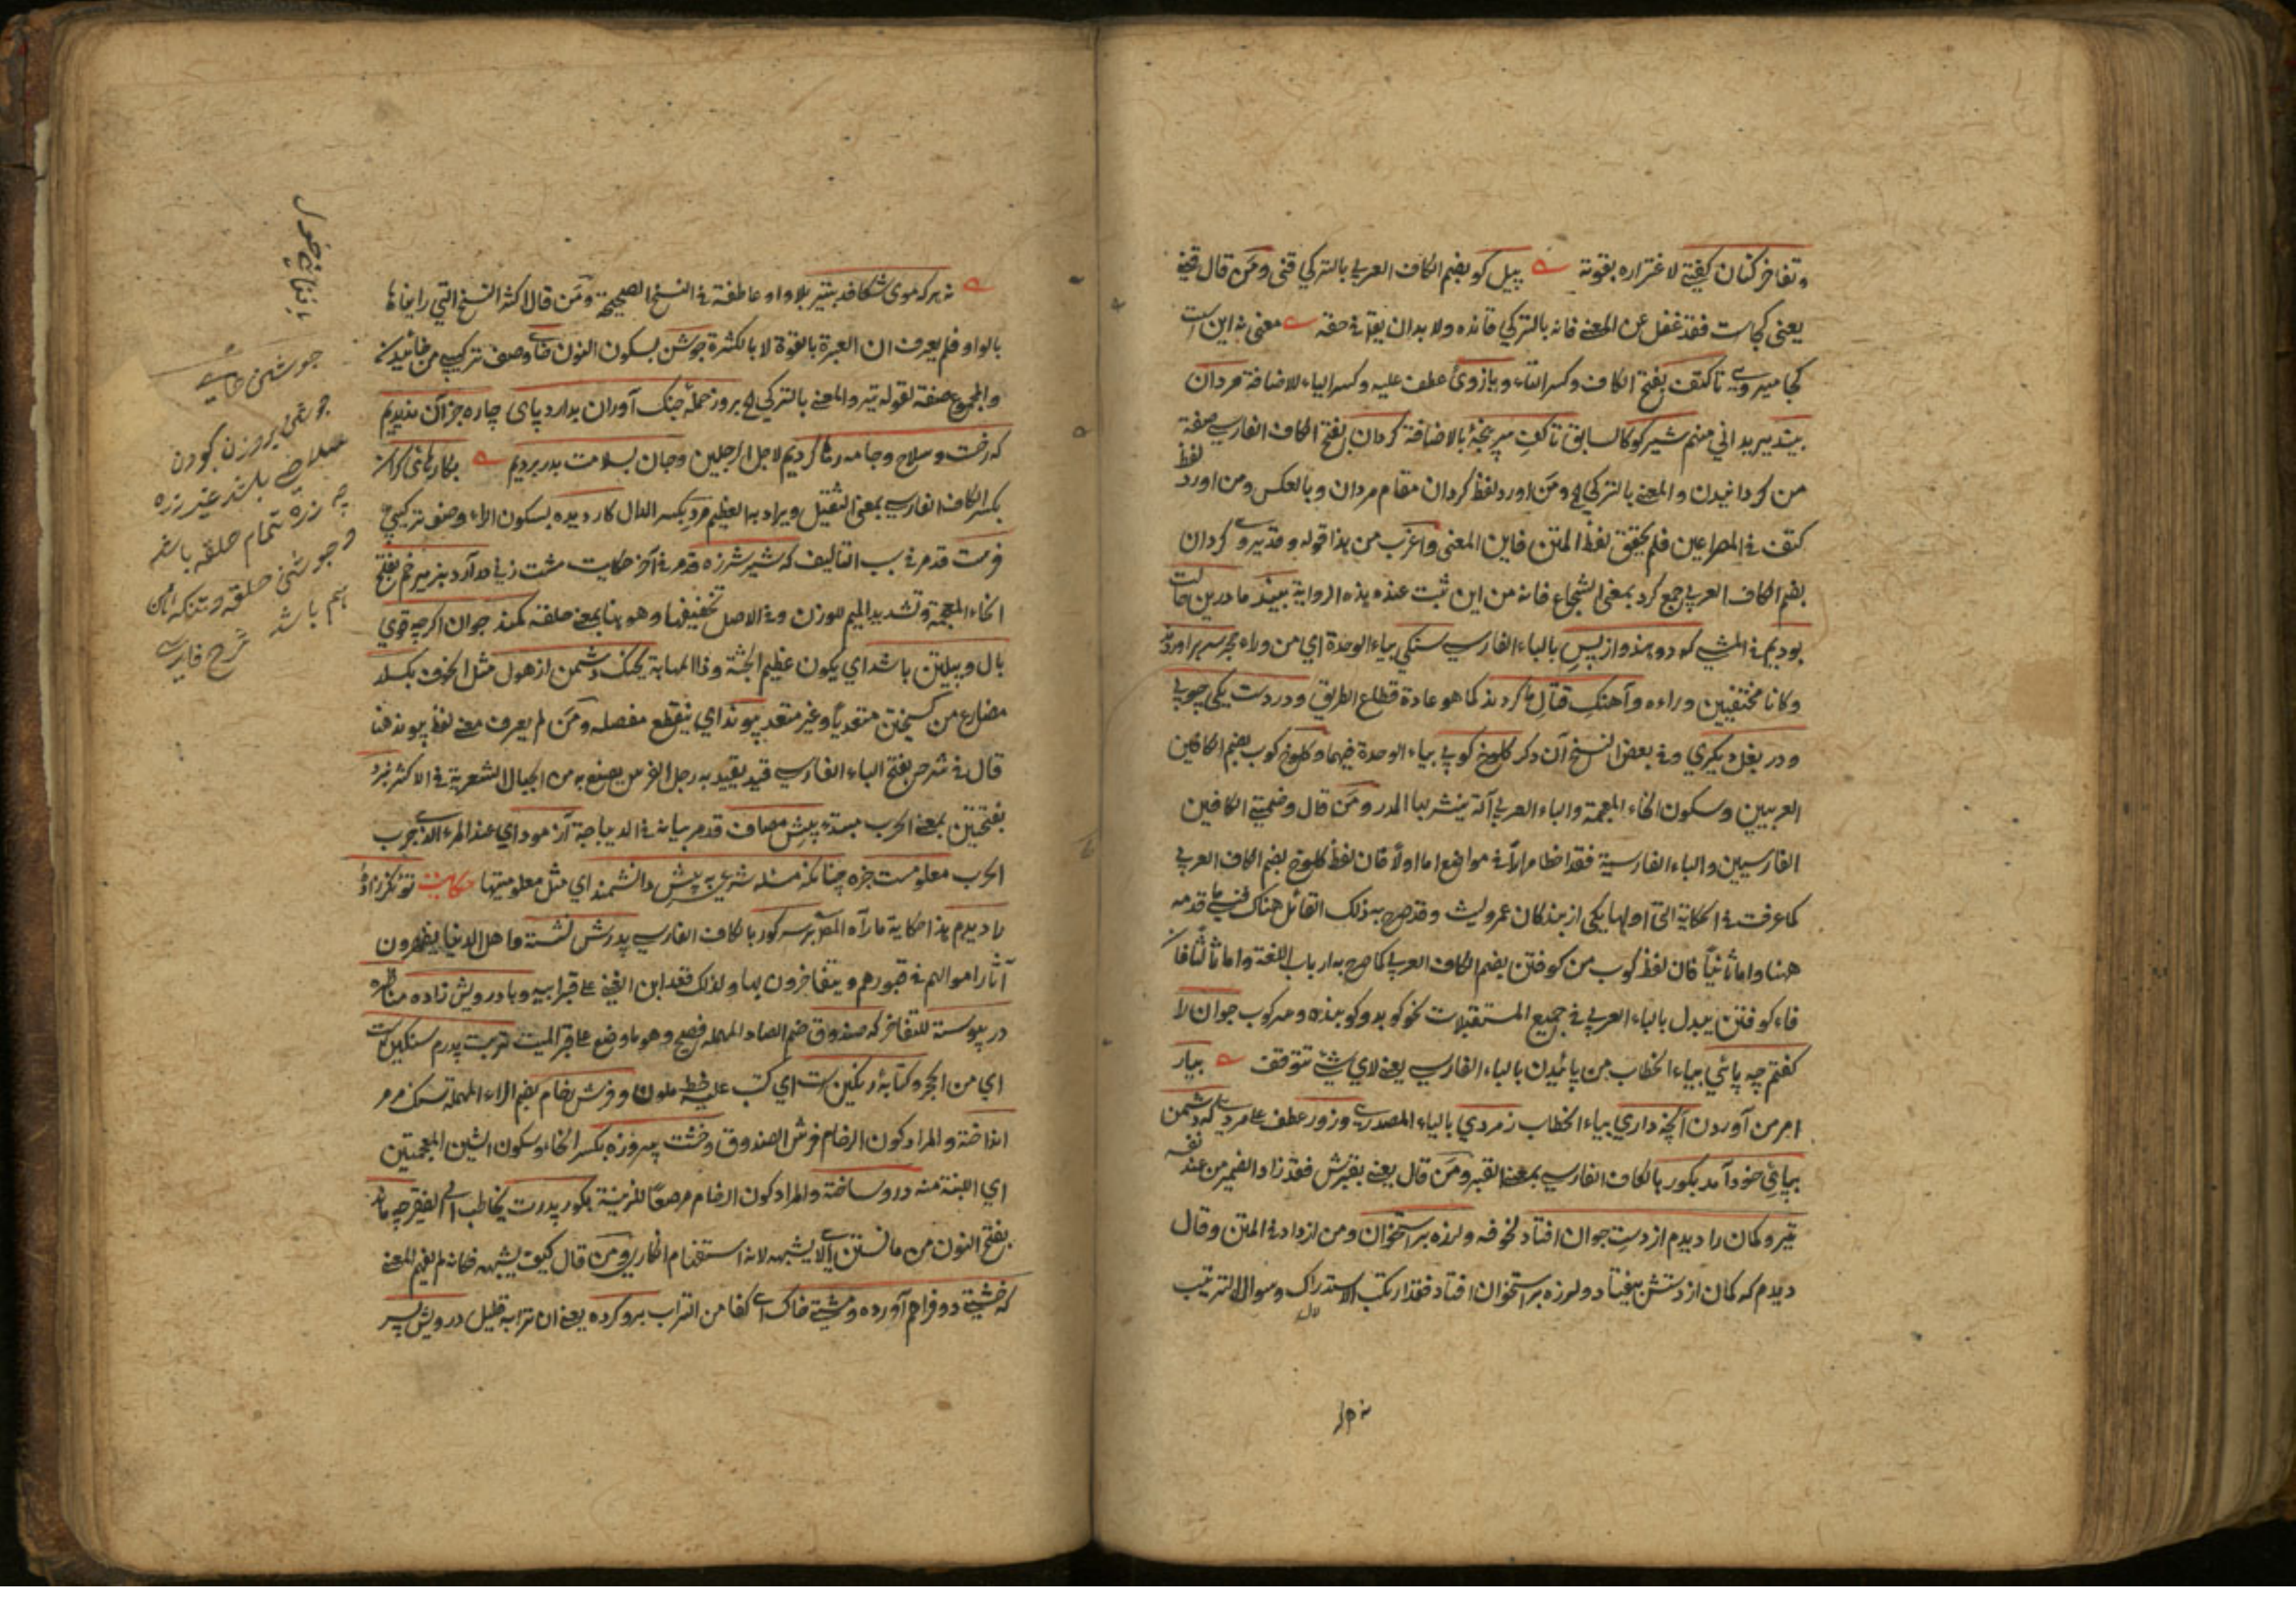 وتفاخر كنان كفتى لاغتراره بقوته پيل كو بضم الكاف العربي بالتركي قنى ومن قال قنى
يعنى كجاست فقد غفل عن المعنى فانه بالتركي قانده ولا بد ان يقرأ فى حقه معنى نه اين است
كجا ميروى تا كتف بفتح الكاف وكسر التاء وبازوى عطف عليه وكسر الياء للاضافة مردان
بيند ميريد انى منهم شير كو كالسابق تا كف سر پنجهٔ بالاضافة كردان بفتح الكاف الفارسى صفة
من كردانيدن والمعنى بالتركي ومن اورد لفظ كردان مقام مردان وبالعكس ومن اورد لفظ
كتف فى المصراعين فلم يحقق لفظ المتن فاين المعنى واغرب من هذا قوله وقد يروى كردان
بضم الكاف العربى جمع كرد بمعنى الشجاع فانه من اين ثبت عنده هذه الرواية بيند ما درين حالت
بوديم فى المشى كه دو هندو از پس بالباء الفارسى سنكى بياء الوحدة اي من وراء حجر سر براوردند
وكانا مختفيين وراءه وآهنك قتال ما كردند كما هو عادة قطاع الطريق ودر دست يكى چوبى
ودر بغل ديكرى وفى بعض النسخ آن دكر كلوخ كوبى بياء الوحدة فيهما وكلوخ كوب بضم الكافين
العربيين وسكون الخاء المعجمة والباء العربى آلة ينشر بها المدر ومن قال وضمتى الكافين
الفارسيين والباء الفارسية فقد اخطأ مرارا فى مواضع اما اولا فان لفظ كلوخ بضم الكاف العربى
كما عرفت فى الحكاية التى اولها يكى از بندكان عمرو ليث وقد صرح به ذلك القائل هناك فنسى ما قدمه
ههنا واما ثانيا فان لفظ كوب من كوفتن بضم الكاف العربى كما صرح به ارباب اللغة واما ثالثا فان
فاء كوفتن يبدل بالباء العربى فى جميع المستقبلات نحو كوبد وكوبنده ومركوب جوان را
كفتم چه پائي بياء الخطاب من پائيدن بالباء الفارسى يعنى لاي شئ تتوقف بيار
امر من آوردن آنچه داري بياء الخطاب ز مردي بالياء المصدرى وزور عطف على مردى كه دشمن
بپائي خود آمد بكور بالكاف الفارسى بمعنى القبر ومن قال يعنى بقبرش فقد زاد الضمير من عند نفسه
تير وكمان را ديدم از دست جوان افتاد لخوفه ولرزه بر استخوان ومن ازداد فى المتن وقال
ديدم كه كمان از دستش بيفتاد ولرزه بر استخوان افتاد فقد ارتكب الاستدراك وسوال الترتيب
نه هر
نه هر كه موى شكافد بتير بلا واو عاطفة فى النسخ الصحيحة ومن قال اكثر النسخ التي رايناها
بالواو فلم يعرف ان العبرة بالقوة لا بالكثرة جوشن بسكون النون خاى وصف تركيبى من خائيدن
والمجموع صفة لقوله تير والمعنى بالتركي بروز حملهٔ جنك آوران بدارد پاى چاره جز آن نديديم
كه رخت وسلاح وجامه رها كرديم لاجل الرجلين وجان بسلامت بدر برديم بكارهاى كران
بكسر الكاف الفارسى بمعنى الثقيل ويراد به العظيم مرد بكسر الدال كار ديده بسكون الراء وصف تركيبى
فرست قد مر فى سبب التاليف كه شير شرزه قد مر فى آخر حكايت مشت زنى در آرد بزير خم بفتح
الخاء المعجمة وتشديد الميم للوزن وفى الاصل تخفيفها وهو هنا بمعنى حلقه كمند جوان اكرچه قوي
يال وپيلتن باشد اي يكون عظيم الجثة وذا المهابة بجنك دشمنش از هول مثل الخوف بكسلد
مضارع من كسيختن متعديا وغير متعد پيوند اي ينقطع مفصله ومن لم يعرف معنى لفظ پيوند هنا
قال فى شرحه بفتح الباء الفارسى قيد يقيد به رجل الفرس يصنع به من الحبال الشعرية فى الاكثر نبرد
بفتحتين بمعنى الحرب مبتدء پيش مصاف قد مر بيانه فى الديباجة آزموده اي عند المرء الذى جرب
الحرب معلومست خبره چنانكه مسئله شرعى به پيش دانشمند اي مثل معلوميتها حكايت توانكر زادهٔ
را ديدم هذا حكاية ما رآه المص بر سر كور بالكاف الفارسى پدرش نشسته واهل الدنيا يظهرون
آثار اموالهم فى قبورهم ويتفاخرون بها ولذلك قعد ابن الغنى على قبر ابيه وبا درويش زاده مناظره
در پيوسته للتفاخر كه صندوق ضم الصاد المهملة فصيح وهو ما وضع على قبر الميت تربت پدرم سنكين است
اي من الحجر وكتابهٔ رنكين است اي كتب عليه خط ملون وفرش رخام بضم الراء المهملة سنك مرمر
انداخته والمراد كون الرخام فرش الصندوق وخشت پيروزه بكسر الخاء وسكون الشين المعجمتين
اي اللبنة منه درو ساخته والمراد كون الرخام مرصعا للزينة بكور پدرت يخاطب الى الفقير چه ماند
بفتح النون من مانستن اى لا يشبهه لانه استفهام انكارى ومن قال كيف يشبهه فكانه لم يفهم المعنى
كه خشتى دو فراهم آورده ومشتى خاك اى كفا من التراب برو كرده يعنى ان ترابه قليل درويش پسر
جوشن خاى
جوشن بر وزن كودن
سلاحى باشد غير زره
چه زره تمام حلقه باشد
و جوشن حلقه وتنكه آهن
هم باشد شرح فارسى